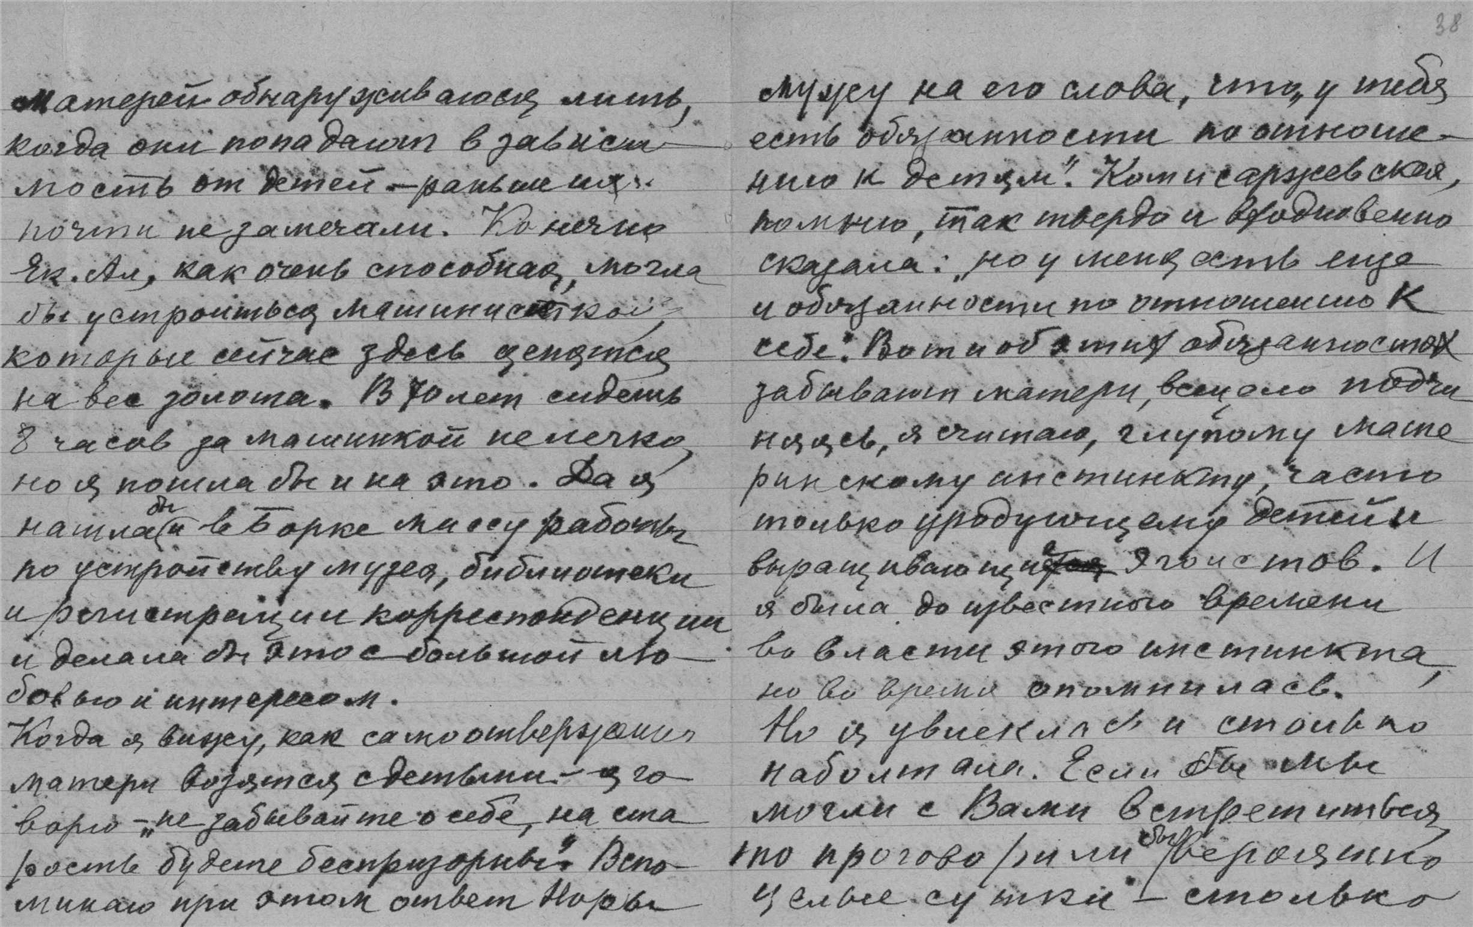 матерей обнаруживаются лишь,
когда они попадают в зависи-
мость от детей – раньше их
почти не замечали. Конечно
Ек. Ал., как очень способная, могла
бы устроиться машинисткой,
которые сейчас здесь ценятся
на вес золота. В 70 лет сидеть
8 часов за машинкой не легко,
но я пошла бы и на это. Да я
нашла бы и в Борке массу работы
по устройству музея, библиотеки
и регистрации корреспонденции
и делала бы это с большой лю-
бовью и интересом.
Когда я вижу, как самоотверженно
матери возятся с детьми – я го-
ворю – „не забывайте о себе, на ста
рость будете беспризорны". Вспо-
минаю при этом ответ Норы
38
мужу на его слова, что „у тебя
есть обязанности по отноше-
нию к детям". Комисаржевская,
помню, так твердо и вдохновенно
сказала: „но у меня есть еще
и обязанности по отношению к
себе". Вот и об этих обязанностях
забывают матери, всецело подчи
няясь, я считаю, глупому мате
ринскому инстинкту, часто
только уродующему детей и
выращивающие эгоистов. И
я была до известного времени
во власти этого инстинкта,
но во время опомнилась.
Но я увлеклась и столько
наболтала. Если бы мы
могли с Вами встретиться,
то проговорили бы вероятно
целые сутки – столько